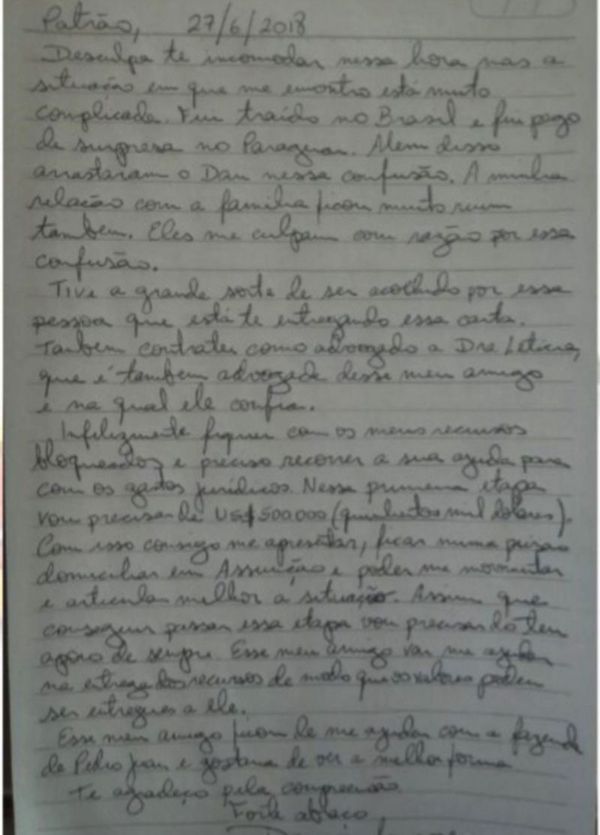 Patrão, 27/6/2018
Desculpa te incomodar nessa hora mas a
situação em que me encontro está muito
complicada. Fui traído no Brasil e fui pego
de surpresa no Paraguai. Alem disso
arrastaram o Dan nessa confusão. A minha
relação com a família ficou muito ruim
tambem. Eles me culpam com razão por essa
confusão.
Tive a grande sorte de ser acolhido por essa
pessoa que está te entregando essa carta.
Tambem contratei como advogado a Dra Leticia,
que é tambem advogada desse meu amigo
e na qual ele confia.
Infelizmente fiquei com os meus recursos
bloqueados e preciso recorrer a sua ajuda para
com os gastos jurídicos. Nessa primeira etapa
vou precisar de US$ 500.000 (quinhentos mil dólares).
Com isso consigo me apresentar, ficar numa prisão
domiciliar em Assunção e poder me movimentar
e articular melhor a situação. Assim que
conseguir passar essa etapa vou precisar do teu
apoio de sempre. Esse meu amigo vai me ajudar
na entrega dos recursos de modo que os valores podem
ser entregues a ele.
Esse meu amigo ficou de me ajudar com a fazenda
de Pedro Juan e gostaria de ver a melhor forma
Te agradeço pela compreensão
Forte abraço,